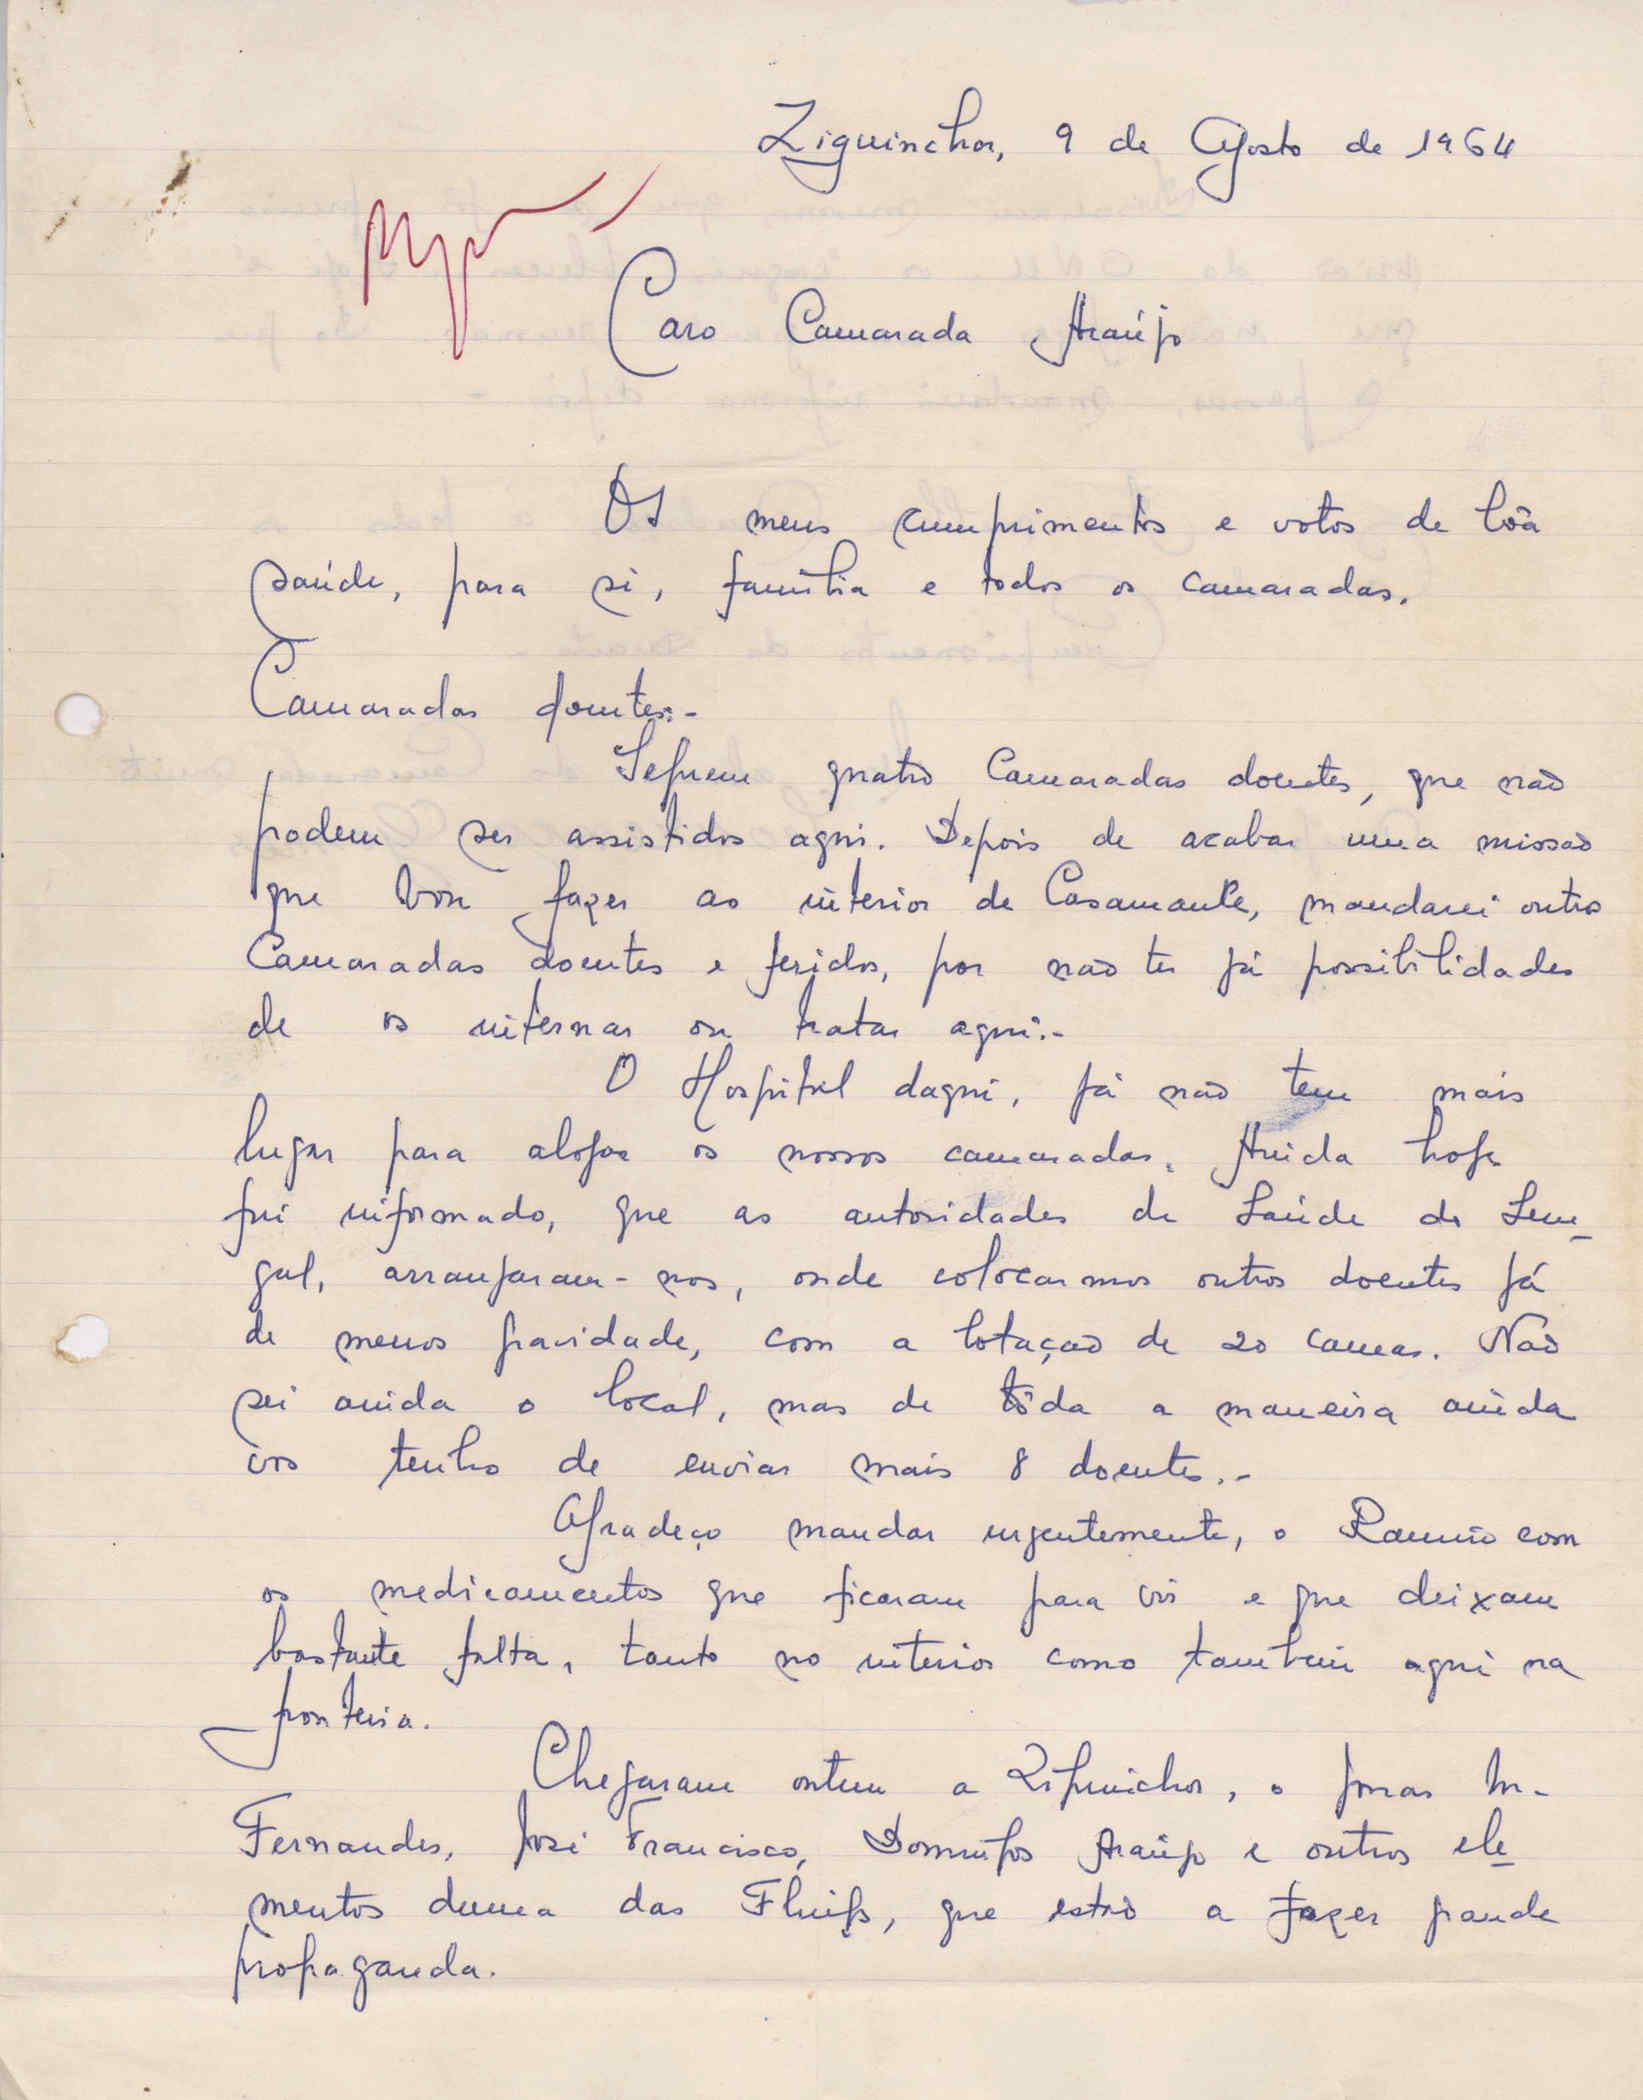 Ziguinchor, 9 de Agosto de 1964
Caro Camarada Araújo
Os meus cumprimentos e votos de bôa
saúde, para si, família e todos os camaradas.
Camaradas doentes:-
Seguem quatro Camaradas doentes, que não
podem ser assistidos aqui. Depois de acabar uma missão
que vou fazer ao interior de Casamance, mandarei outros
Camaradas doentes e feridos, por não ter já possibilidades
de os internar ou tratar aqui.-
O Hospital daqui, já não tem mais
lugar para alojar os nossos camaradas. Ainda hoje
fui informado, que as autoridades de Saúde do Sene-
gal, arranjaram-nos, onde colocarmos outros doentes já
de menos gravidade, com a lotação de 20 camas. Não
sei ainda o local, mas de tôda a maneira ainda
vos tenho de enviar mais 8 doentes.-
Agradeço mandar urgentemente, o Ramiro com
os medicamentos que ficaram para vir e que deixam
bastante falta, tanto no interior como também aqui na
fronteira.
Chegaram ontem a Ziguinchor, o Jonas M.
Fernandes, José Francisco, Domingos Araújo e outros ele-
mentos duma das que estão a fazer grande
propaganda.